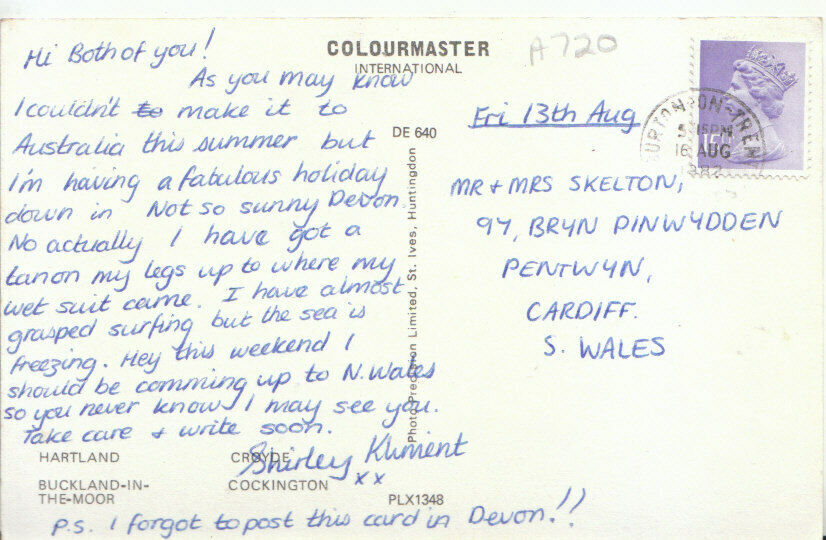 Hi Both of you!
As you may know
I couldn't to make it to
Australia this summer but
I'm having a fabulous holiday
down in Not so sunny Devon.
No actually I have got a
tan on my legs up to where my
wet suit came. I have almost
grasped surfing but the sea is
freezing. Hey this weekend I
should be comming up to N. Wales
so you never know I may see you.
Take care + write soon.
Shirley
x x
P.S. I forgot to post this card in Devon.!!
HARTLAND CROYDE
BUCKLAND-IN- COCKINGTON
THE-MOOR
PLX1348
COLOURMASTER
INTERNATIONAL
A720
DE 640
Photo Precision Limited, St. Ives, Huntingdon
Fri 13th Aug
MR + MRS SKELTON,
97, BRYN PINWYDDEN
PENTWYN,
CARDIFF.
S. WALES
BURTON-ON-TREN
5.15PM
16 AUG